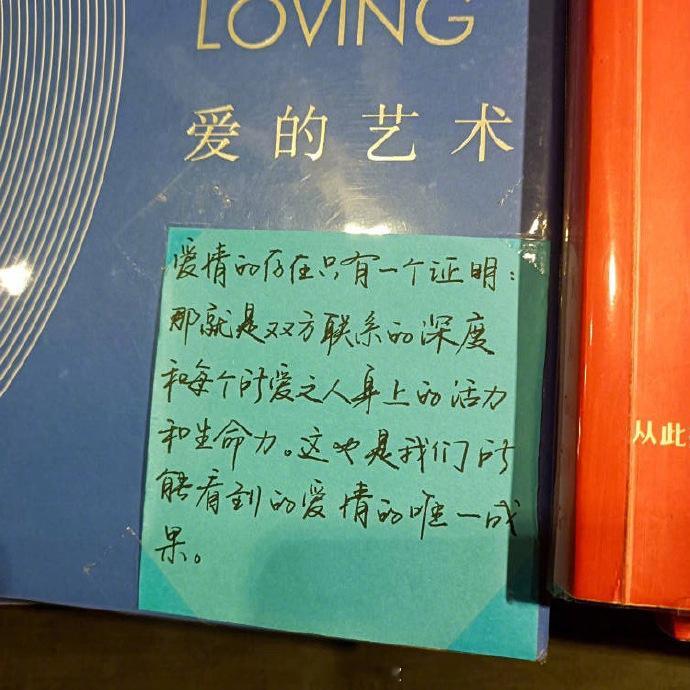 LOVING
爱的艺术
爱情的存在只有一个证明：
那就是双方联系的深度
和每个所爱之人身上的活力
和生命力。这也是我们所
能看到的爱情的唯一成
果。
从此